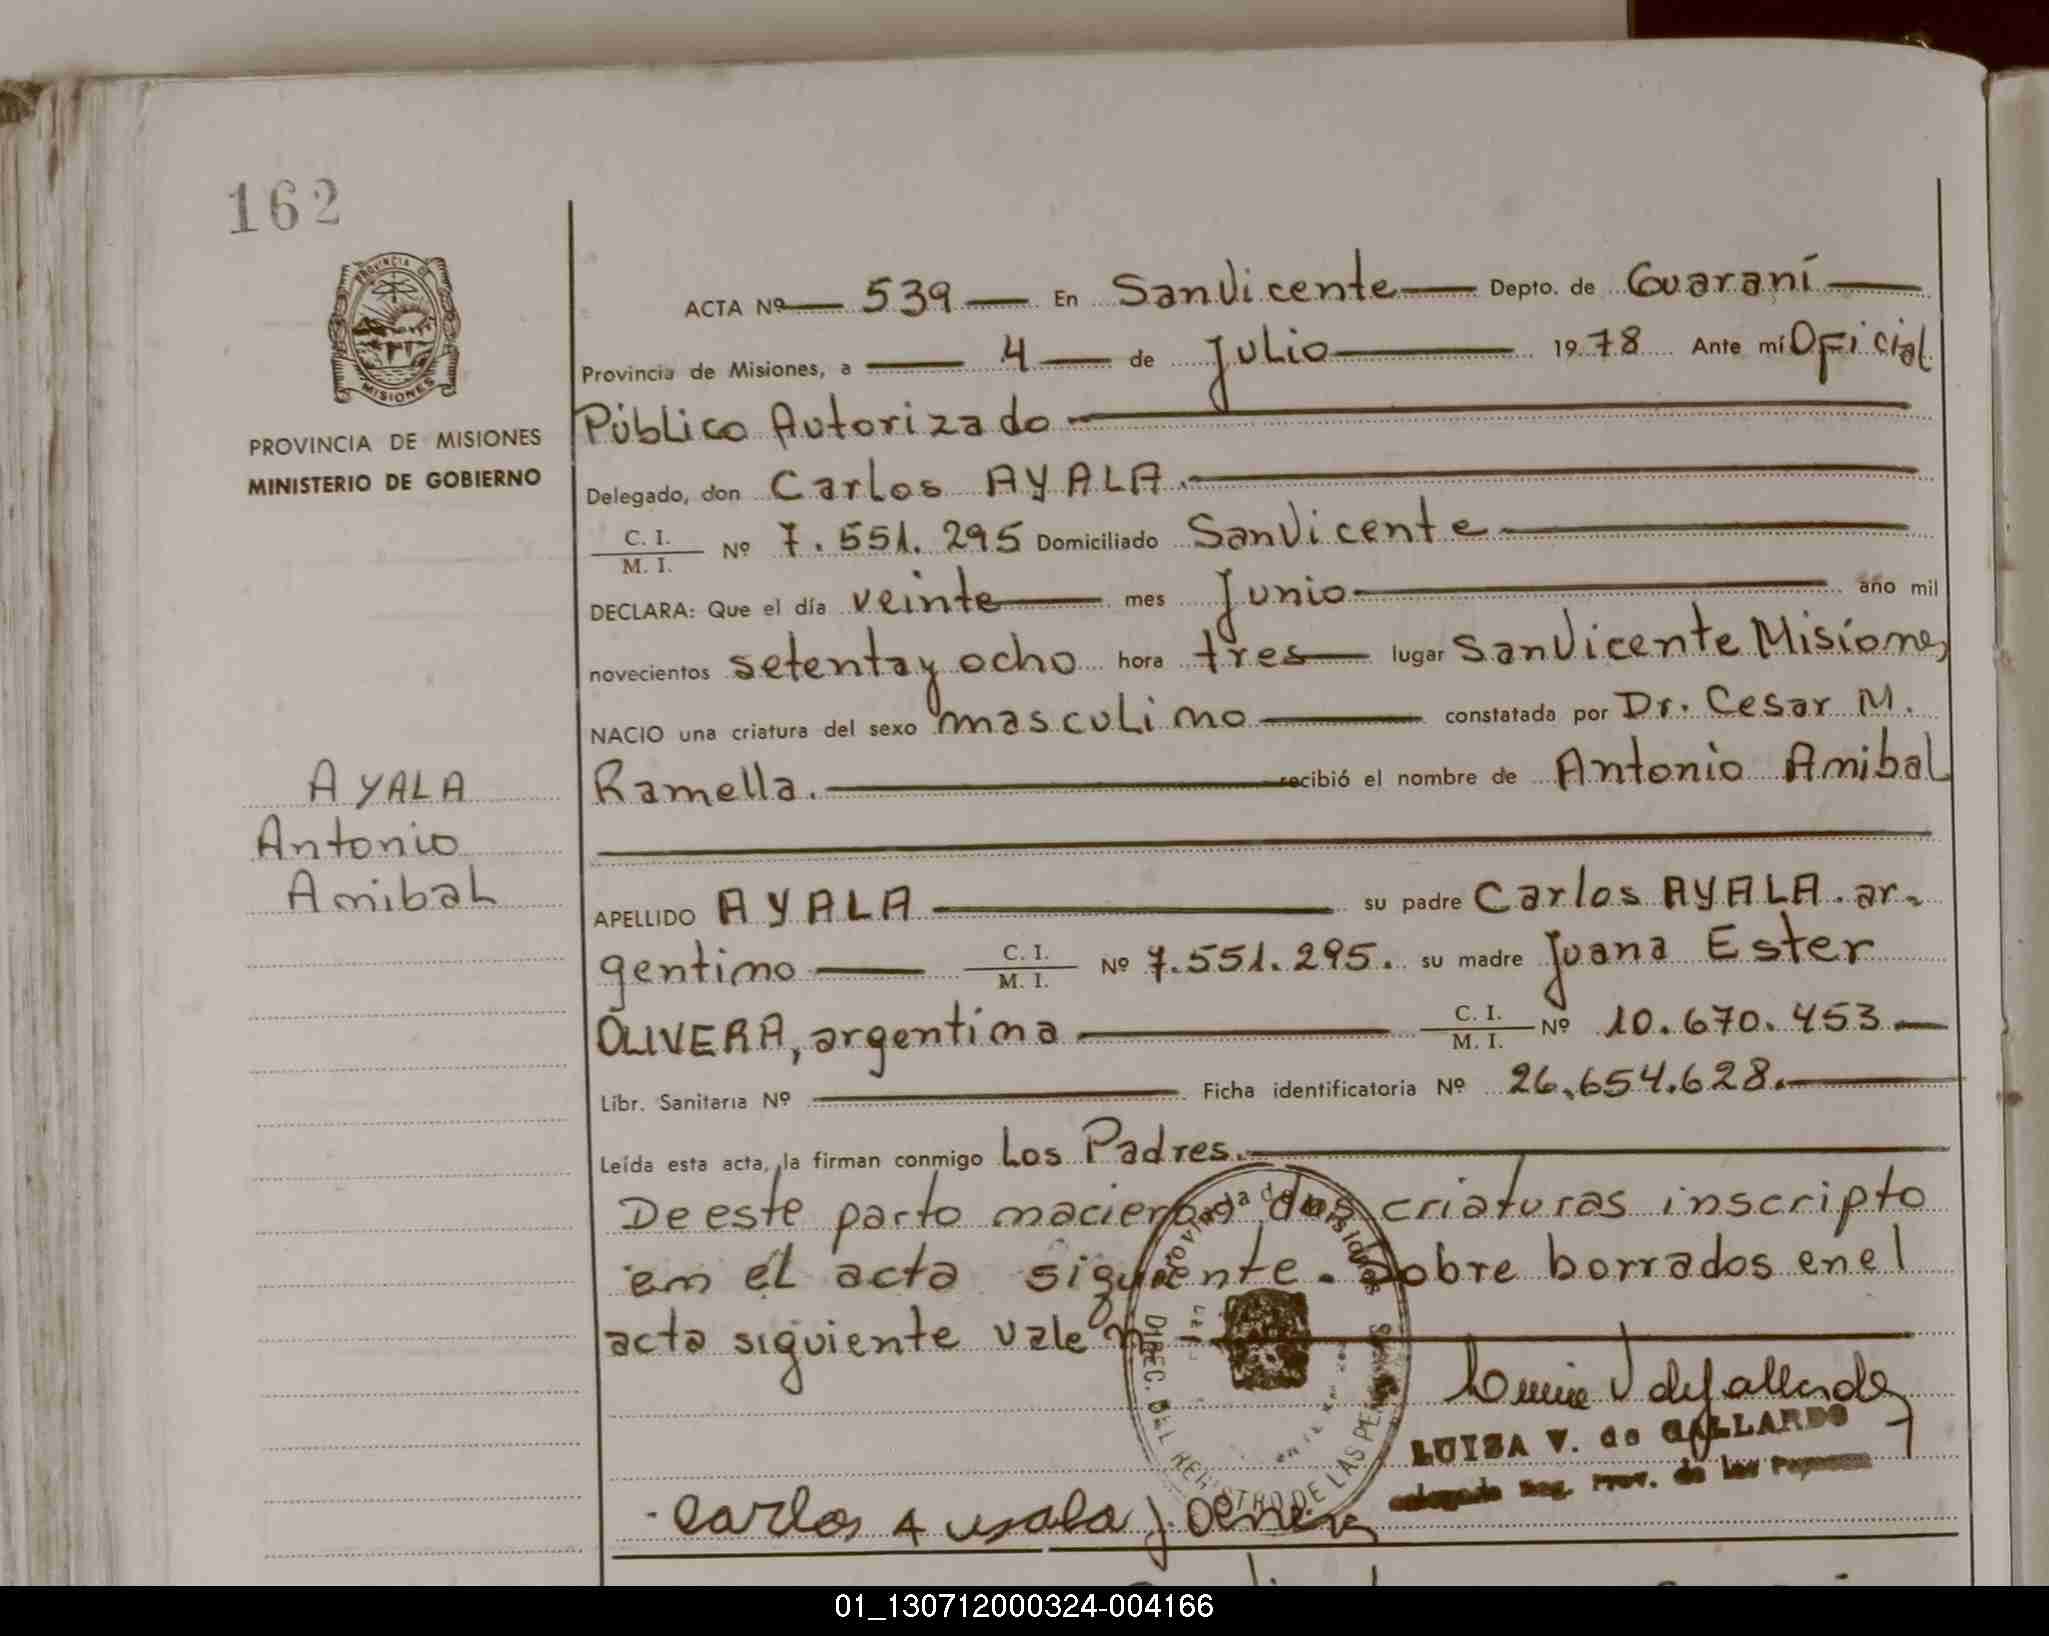 162
PROVINCIA DE MISIONES
PROVINCIA DE MISIONES
MINISTERIO DE GOBIERNO
ACTA Nº 539 En San Vicente Depto. de Guaraní
Provincia de Misiones, a 4 de Julio 1978 Ante mí Oficial
Público Autorizado
Delegado, don Carlos AYALA.
C. I.
M. I. Nº 7.551.295 Domiciliado San Vicente
DECLARA: Que el día veinte mes Junio año mil
novecientos setenta y ocho hora tres lugar San Vicente Misiones
NACIO una criatura del sexo masculino constatada por Dr. Cesar M.
Ramella. recibió el nombre de Antonio Anibal
AYALA
Antonio
Anibal
APELLIDO AYALA su padre Carlos AYALA. ar-
gentino C. I.
M. I. Nº 7.551.295. su madre Juana Ester
OLIVERA, argentina C. I.
M. I. Nº 10.670.453
Libr. Sanitaria Nº Ficha identificatoria Nº 26.654.628.
Leída esta acta, la firman conmigo Los Padres.
De este parto nacieron dos criaturas inscripto
en el acta siguiente. Sobre borrados en el
acta siguiente valen
Provincia de Misiones
DIREC. DEL REGISTRO DE LAS PERSONAS
LUISA V. de GALLARDO
Delegada Reg. Prov. de las Personas
Carlos A Ayala J. Olivera
01_130712000324-004166